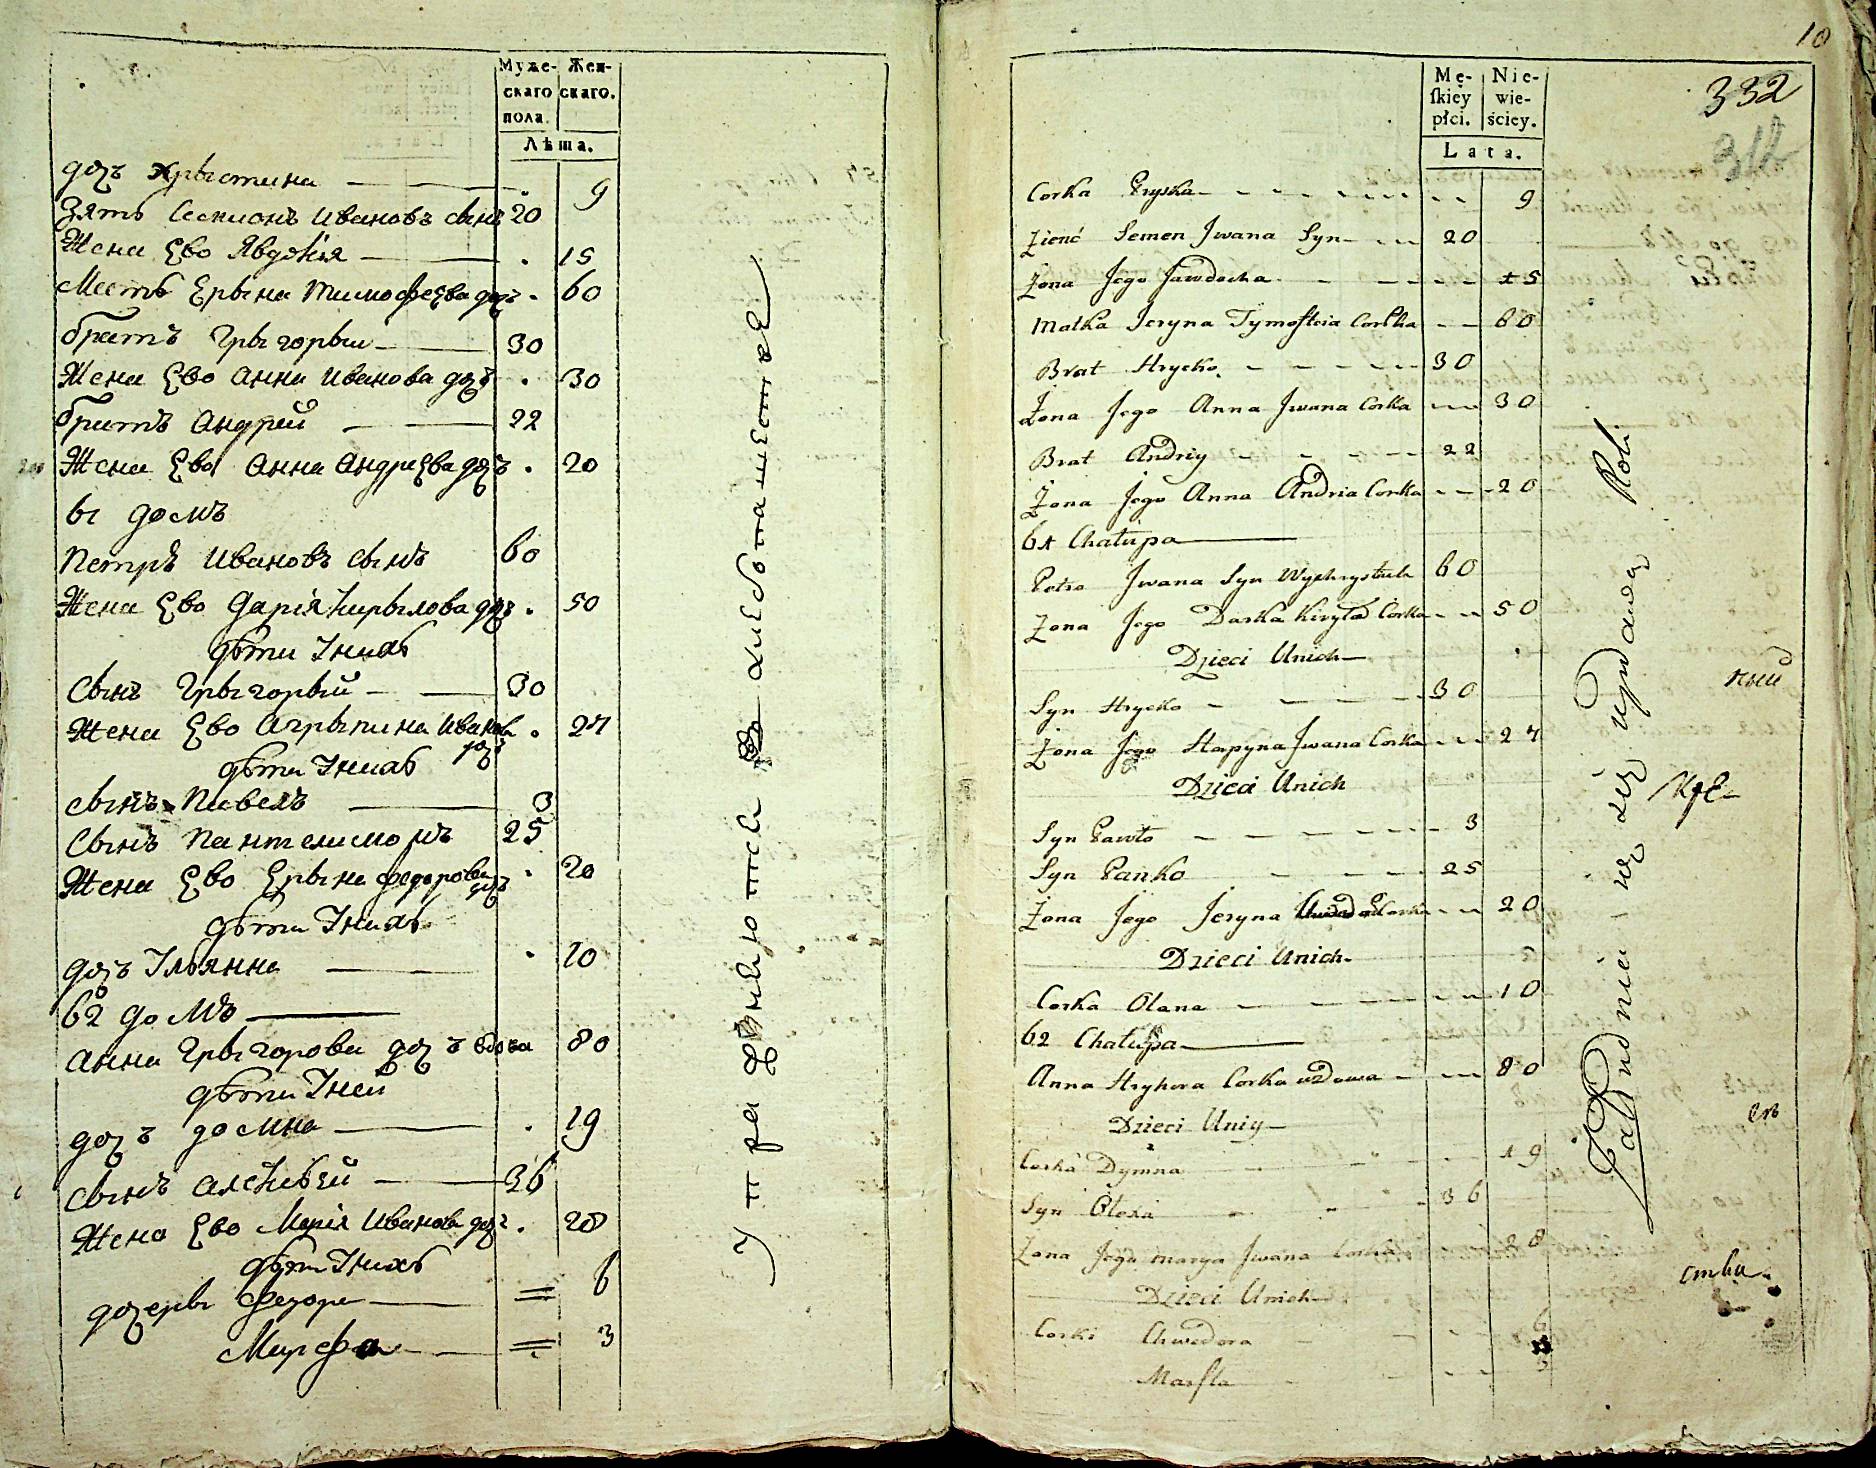 Муже-
скаго
пола.
Жен-
скаго.
Лѣта.
доч Хрыстина 9
Зять Семионъ Ивановъ сынъ 20
Жена Ево Явдокія 15
Мать Ерына Тимофеева доч 60
братъ Грыгорыи 30
Жена Ево Анна Иванова доч 30
братъ Андрей 22
Жена Ево Анна Андреева доч 20
61 домъ
Петръ Ивановъ сынъ 60
Жена Ево Дарія Кирылова доч 50
дѣти Унихъ
сынъ Грыгорый 30
Жена Ево Агрыпина Иванова доч 27
дѣти Унихъ
сынъ Павелъ 3
Сынъ Пантелимонъ 25
Жена Ево Ерына Федорова доч 20
дѣти Унихъ
доч Ульянна 10
62 домъ
Анна Грыгорова доч вдова 80
дѣти Уней
доч домна 19
сынъ Алекѣей 36
Жена Ево Марія Иванова доч 28
дѣти Унихъ
дочеры Федора 6
Марфа 3
Упражняютса в хлебопашестве
10
332
312
Mę-
ſkiey
płci.
Nie-
wie-
ściey.
Lata.
Corka Pryska 9
Zienć Semen Jwana Syn 20
Zona Jego Jawdocha 15
Matka Jeryna Tymofteia Corka 60
Brat Hrycko 30
Zona Jego Anna Jwana Corka 30
Brat Andriy 22
Zona Jego Anna Andria Corka 20
61 Chałupa
Petro Jwana Syn Wychrystiuk 60
Zona Jego Darka Kiryła Corka 50
Dzieci Unich
Syn Hrycko 30
Zona Jego Hapyna Jwana Corka 27
Dzieci Unich
Syn Pawło 3
Syn Panko 25
Zona Jego Jeryna Corka 20
Dzieci Unich
Corka Olana 10
62 Chałupa
Anna Hryhora Corka wdowa 80
Dzieci Uniy
Corka Dymna 19
Syn Olexa 36
Zona Jego Marya Jwana Corka 28
Dzieci Unich
Corki Chwedora 6
Marfta 3
Zatrudnieni
się uprawą Roli